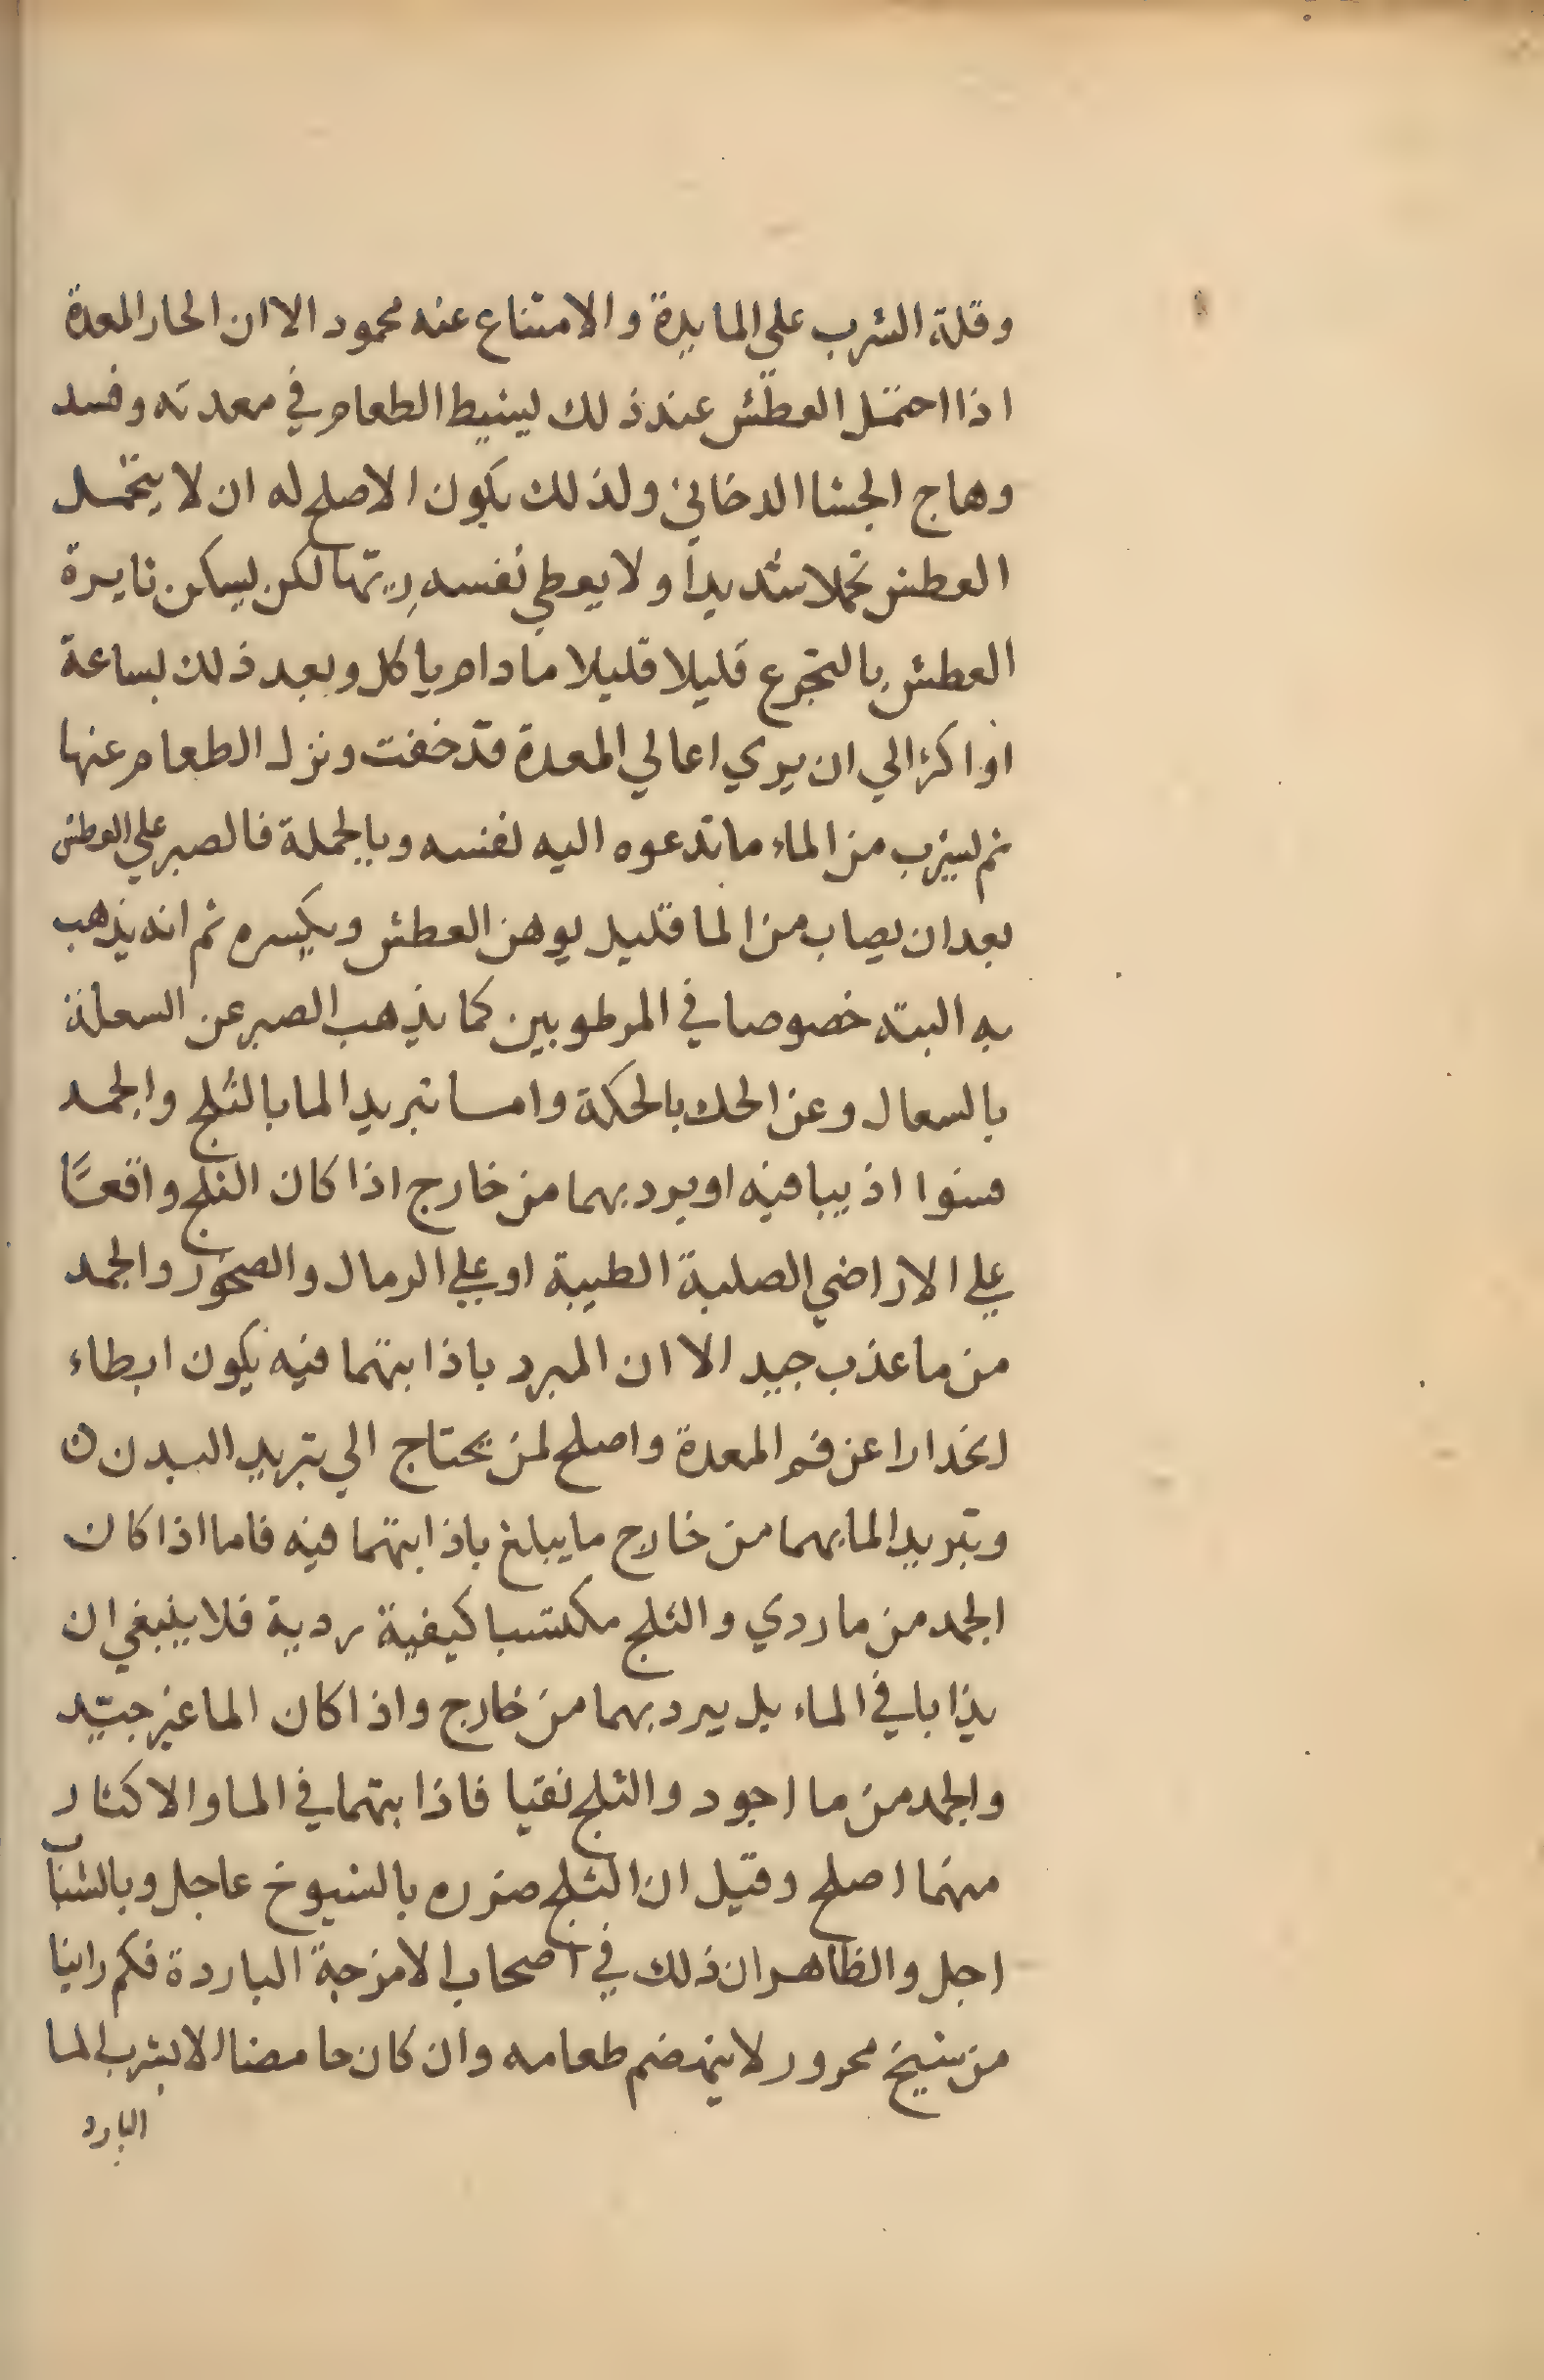 وقلة الشرب علي المايدة والامتناع عنه محمود الا ان الحار المعدة
اذا احتمل العطش عند ذلك ليشيط الطعام في معدته وفسد
وهاج الجشا الدخاني ولذلك يكون الاصلح له ان لا يتحمل
العطش تحملا شديداً ولا يعطي نفسه رِيّتها لكن ليسكن نايرة
العطش بالتجرع قليلا قليلا ما دام ياكل وبعد ذلك بساعة
او اكثر الي ان يري اعالي المعدة قد خفت ونزل الطعام عنها
ثم ليشرب من الماء ما تدعوه اليه نفسه وبالجملة فالصبر علي العطش
بعد ان يصاب من الما قليل يوهن العطش ويكسره ثم انه يذهب
به البته خصوصا في المرطوبين كما يذهب الصبر عن السعلة
بالسعال وعن الحك بالحكة واما تبريد الما بالثلج والجمد
فسوا اذيبا فيه او برد بهما من خارج اذا كان الثلج واقعًا
علي الاراضي الصلبة الطيبة او علي الرمال والصخور والجمد
من ما عذب جيد الا ان المبرد باذابتهما فيه يكون ابطاء
انحدارا عن فم المعدة واصلح لمن يحتاج الي تبريد البدن ن
وتبريد الما بهما من خارج ما يبلغ باذابتهما فيه فاما اذا كان
الجمد من ما ردي والثلج مكتسبا كيفية ردية فلا ينبغي ان
يذابا في الماء بل يبرد بهما من خارج واذا كان الما غير جيّد
والجمد من ما اجود والثلج نقيا فاذابتهما في الما والاكثار
منهما اصلح وقيل ان الثلج ضرره بالشيوخ عاجل وبالشباب
اجل والظاهر ان ذلك في اصحاب الامزجة الباردة فكم راينا
من شيخ محرور لا ينهضم طعامه وان كان حامضا الا بشرب الما
البارد